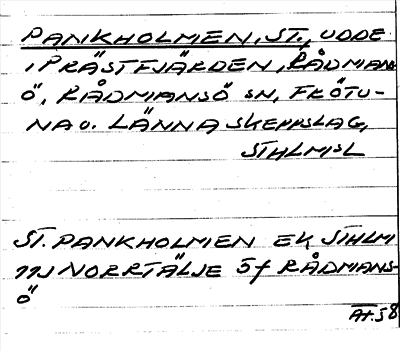 PANKHOLMEN, ST., UDDE
I PRÄSTFJÄRDEN, RÅDMANS-
Ö, RÅDMANSÖ SN, FRÖTU-
NA O. LÄNNA SKEPPSLAG,
STHLMSL
ST. PANKHOLMEN EK STHLM
11J NORRTÄLJE 5f RÅDMANS-
Ö